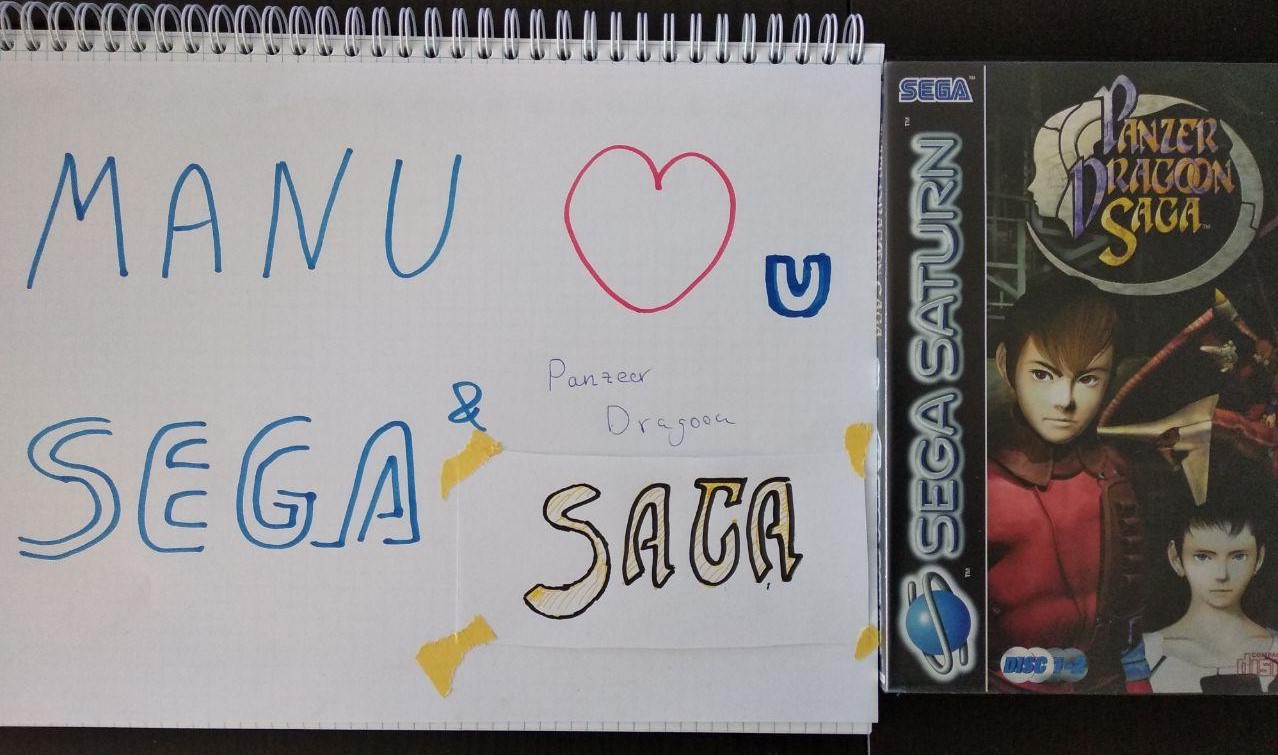 MANU ♡ U
SEGA &
Panzeer
Dragoon
SAGA
SEGA™
SEGA SATURN™
PANZER
DRAGOON
SAGA™
DISC 1-2